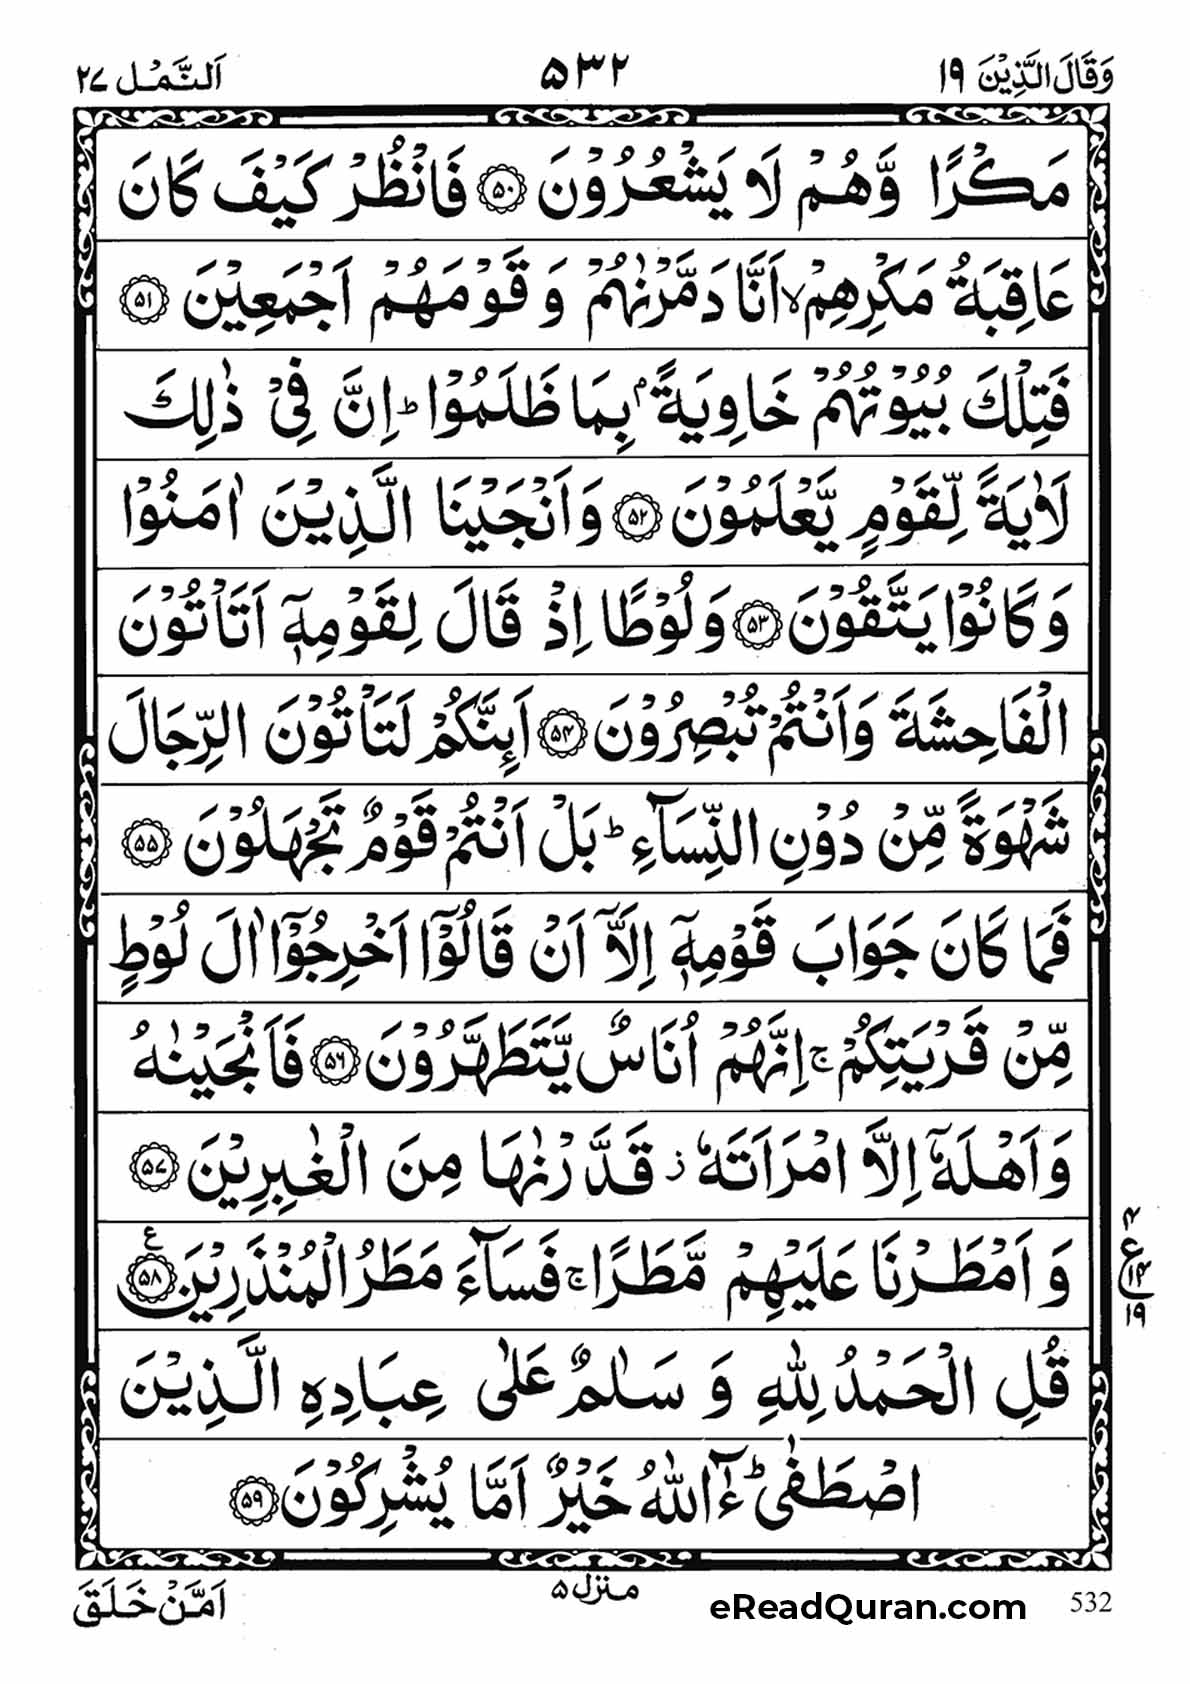 وَقَالَ الَّذِيْنَ ١٩ ٥٣٢ اَلنَّمْل ٢٧
مَكْرًا وَّهُمْ لَا يَشْعُرُوْنَ ۝٥٠ فَانْظُرْ كَيْفَ كَانَ
عَاقِبَةُ مَكْرِهِمْ ۙ اَنَّا دَمَّرْنٰهُمْ وَ قَوْمَهُمْ اَجْمَعِيْنَ ۝٥١
فَتِلْكَ بُيُوْتُهُمْ خَاوِيَةًۢ بِمَا ظَلَمُوْا ؕ اِنَّ فِيْ ذٰلِكَ
لَاٰيَةً لِّقَوْمٍ يَّعْلَمُوْنَ ۝٥٢ وَاَنْجَيْنَا الَّذِيْنَ اٰمَنُوْا
وَكَانُوْا يَتَّقُوْنَ ۝٥٣ وَلُوْطًا اِذْ قَالَ لِقَوْمِهٖٓ اَتَاْتُوْنَ
الْفَاحِشَةَ وَاَنْتُمْ تُبْصِرُوْنَ ۝٥٤ اَئِنَّكُمْ لَتَاْتُوْنَ الرِّجَالَ
شَهْوَةً مِّنْ دُوْنِ النِّسَآءِ ؕ بَلْ اَنْتُمْ قَوْمٌ تَجْهَلُوْنَ ۝٥٥
فَمَا كَانَ جَوَابَ قَوْمِهٖٓ اِلَّآ اَنْ قَالُوْٓا اَخْرِجُوْٓا اٰلَ لُوْطٍ
مِّنْ قَرْيَتِكُمْ ۚ اِنَّهُمْ اُنَاسٌ يَّتَطَهَّرُوْنَ ۝٥٦ فَاَنْجَيْنٰهُ
وَاَهْلَهٗٓ اِلَّا امْرَاَتَهٗ ز قَدَّرْنٰهَا مِنَ الْغٰبِرِيْنَ ۝٥٧
وَ اَمْطَرْنَا عَلَيْهِمْ مَّطَرًا ۚ فَسَآءَ مَطَرُ الْمُنْذَرِيْنَ ۝٥٨ ع
٤ ع ١٤ ١٩
قُلِ الْحَمْدُ لِلّٰهِ وَ سَلٰمٌ عَلٰى عِبَادِهِ الَّذِيْنَ
اصْطَفٰى ؕ ءٰٓاللّٰهُ خَيْرٌ اَمَّا يُشْرِكُوْنَ ۝٥٩
اَمَّنْ خَلَقَ منزل ٥ eReadQuran.com 532